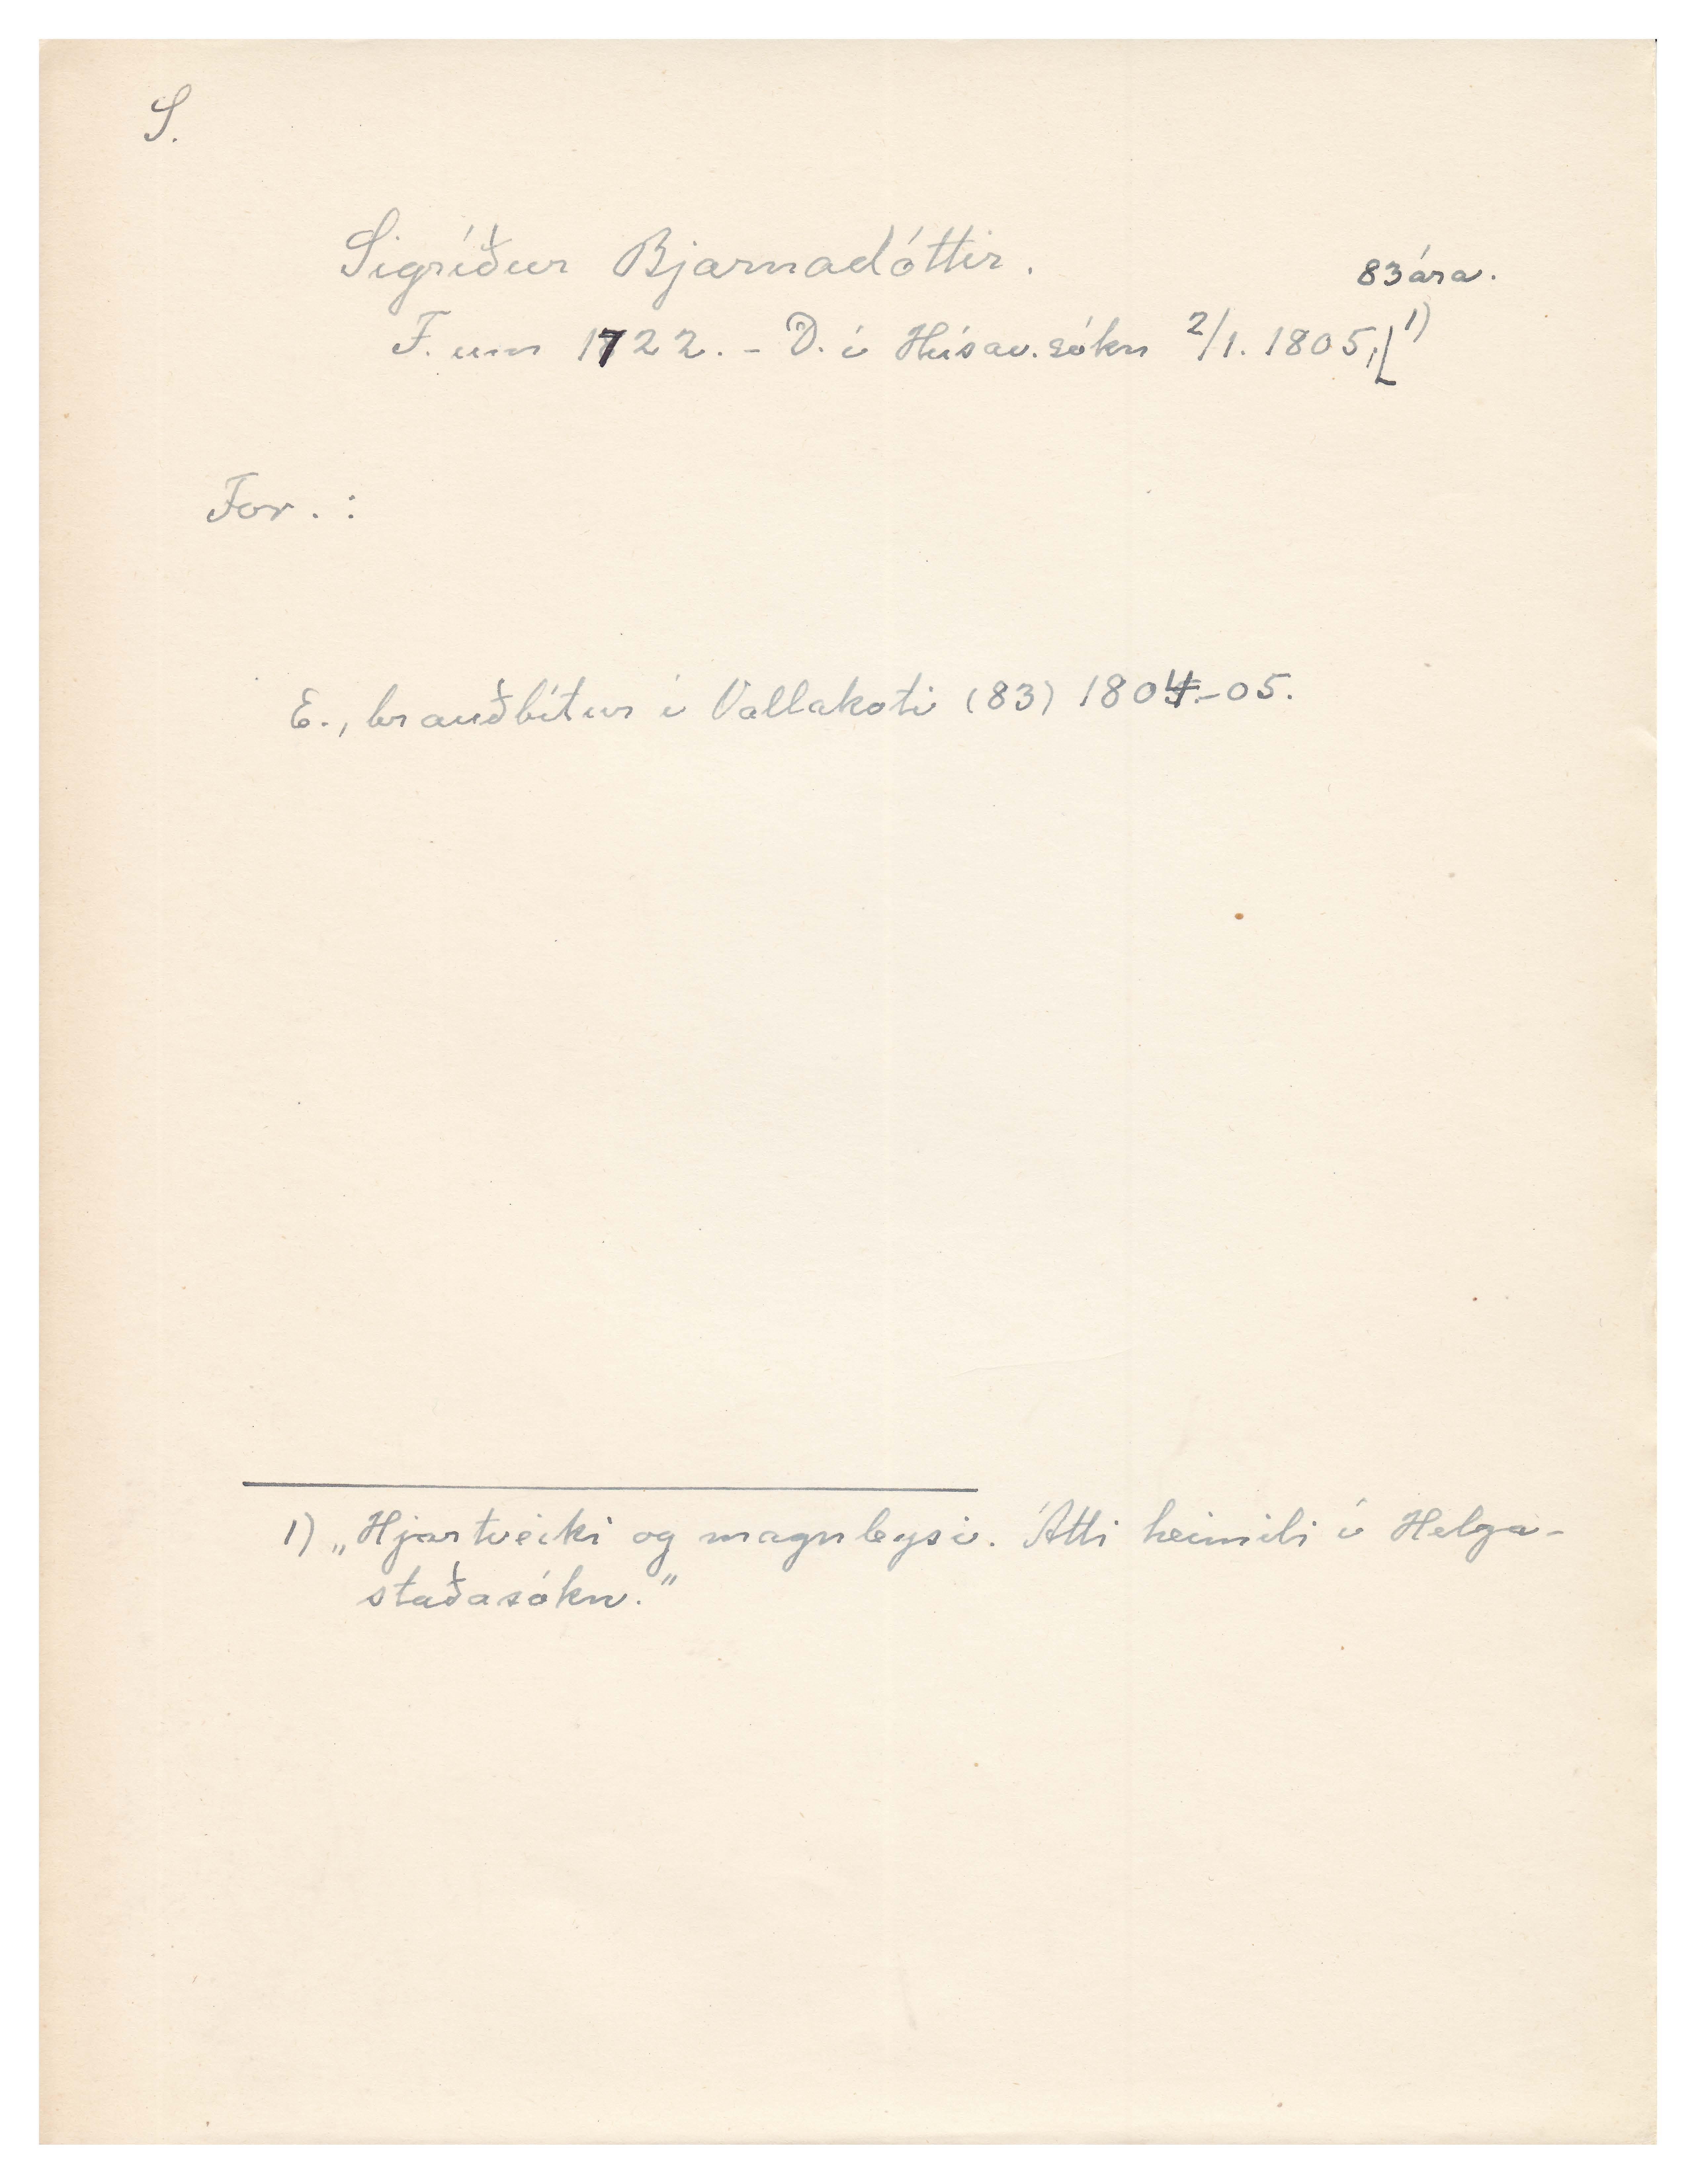 S.
Sigríður Bjarnadóttir.
83 ára.
F. um 1722. - D. í Húsav.sókn 2/1. 1805, 1)
For. :
E., brauðbítur í Vallakoti (83) 1804-05.
1) „Hjartveiki og magnleysi. Átti heimili í Helga-
staðasókn.“